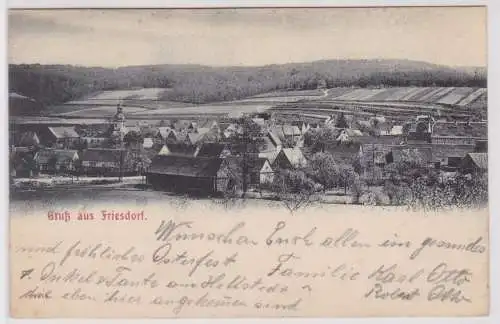 Gruß aus Friesdorf.
Wünschen Euch allen ein gesundes
und fröhliches Osterfest
Familie Karl Otto
Onkel & Tante aus Hettstedt
Robert Otto
die eben hier angekommen sind